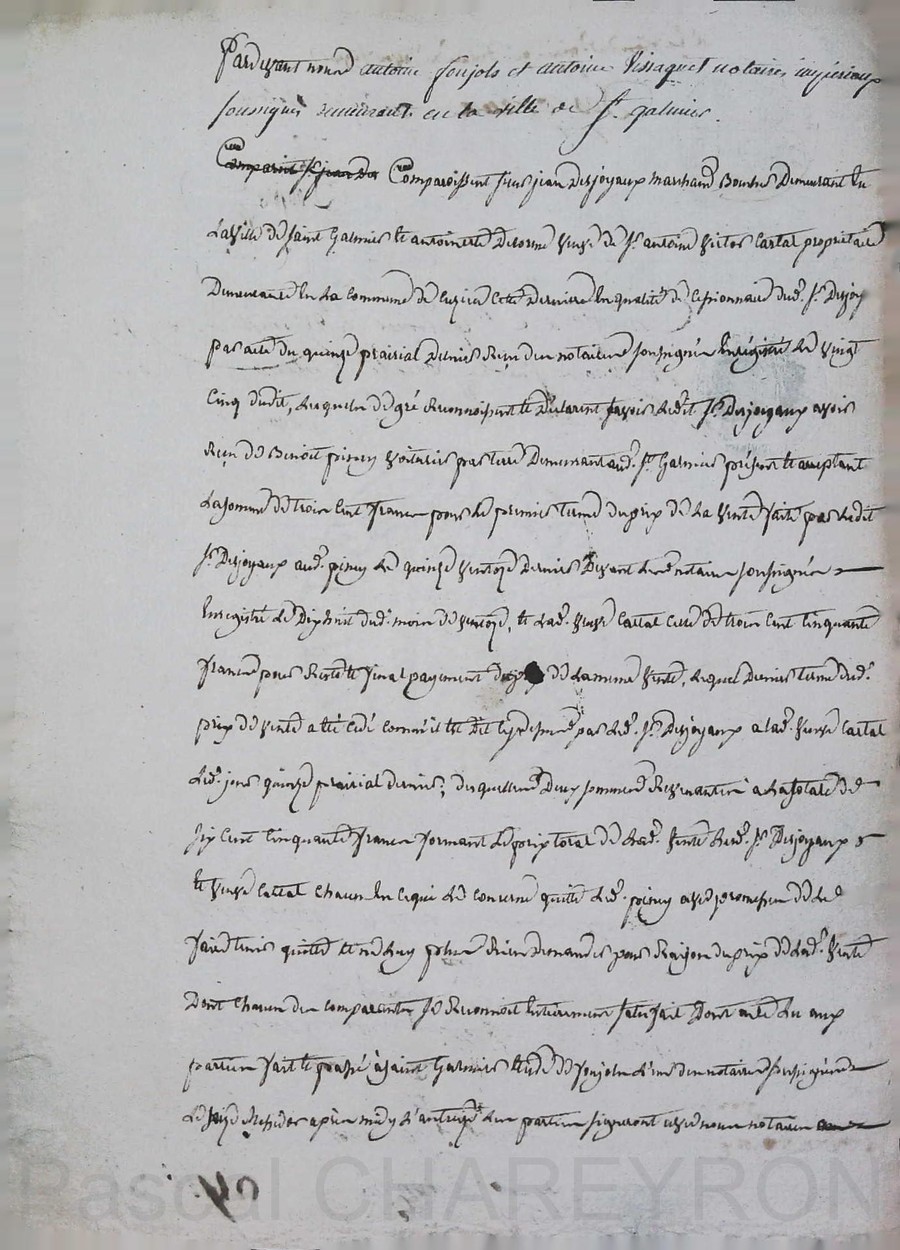 Pardevant nous antoine foujols et antoine Vissaguet notaires impériaux
soussignés demeurants en la ville de St. galmier.
Comparoissent sieur jean Desjoyaux marchand Boucher Demeurant En
La Ville De saint Galmier Et antoinette Delorme veuve de Sr. antoine victor Cartal propriétaire
Demeurante En La Commune De Cuzieu Cette Derniere En qualité De Cessionnaire dud. Sr. Desjoy
par acte du quinze prairial dernier Reçu des notaires soussignés Enrégistré Le vingt
Cinq dudit, Lesquels De gré Reconnoissent Et Déclarent savoir Ledit Sr. Desjoyaux avoir
Reçu De Benoit voiturier par terre Demeurant aud. St. Galmier présent Et acceptant
La somme De trois Cent francs pour Le premier terme du prix De La vente faite par Ledit
Sr. Desjoyaux aud. Le quinze ventoze Dernier Devant Lesd. notaires soussignés
Enregistré Le Dix huit dud. mois De ventoze, Et Lad. veuve Cartal Celle De trois Cent Cinquante
francs pour Reste Et final payement du De La meme vente, Lequel Dernier terme dud.
prix De vente a été Cédé comm'il Est Dit Cy dessus par Led. Sr. Desjoyaux a Lad. veuve Cartal
Led. jour quinze prairial dernier; desquelles Deux sommes Revenantes a La totale De
six Cent Cinquante francs formant Le prix total De Lad. vente Led. Sr. Desjoyaux
Et veuve Cartal Chacun En Ce qui Le Concerne quitte Led. avec promesse De Le
faire tenir quitte Et ne Luy Rien demander pour Raison du prix De Lad. vente
Dont Chacun des Comparants Se Reconnoit Entierement satisfait Dont acte Lu aux
parties fait Et passé à saint Galmier Etude De foujols L'un des notaires soussignés
Le Messidor après midy L'an treize Les parties signeront avec nous notaires
Pascal CHAREYRON